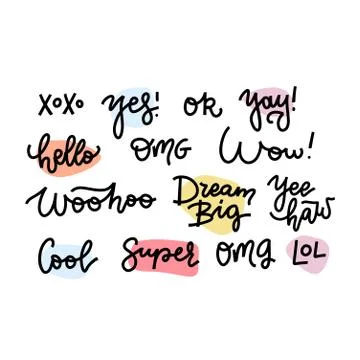 xoxo yes! ok yay!
hello OMG Wow!
Woohoo Dream Big Yee haw
Cool Super omg LOL